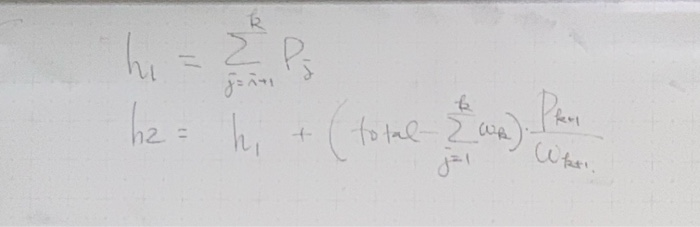 h₁ = ∑_{j=i+1}^{k} P_j
h2 = h₁ + (total - ∑_{j=1}^{k} ω_k) · P_{k+1} / ω_{k+1}.